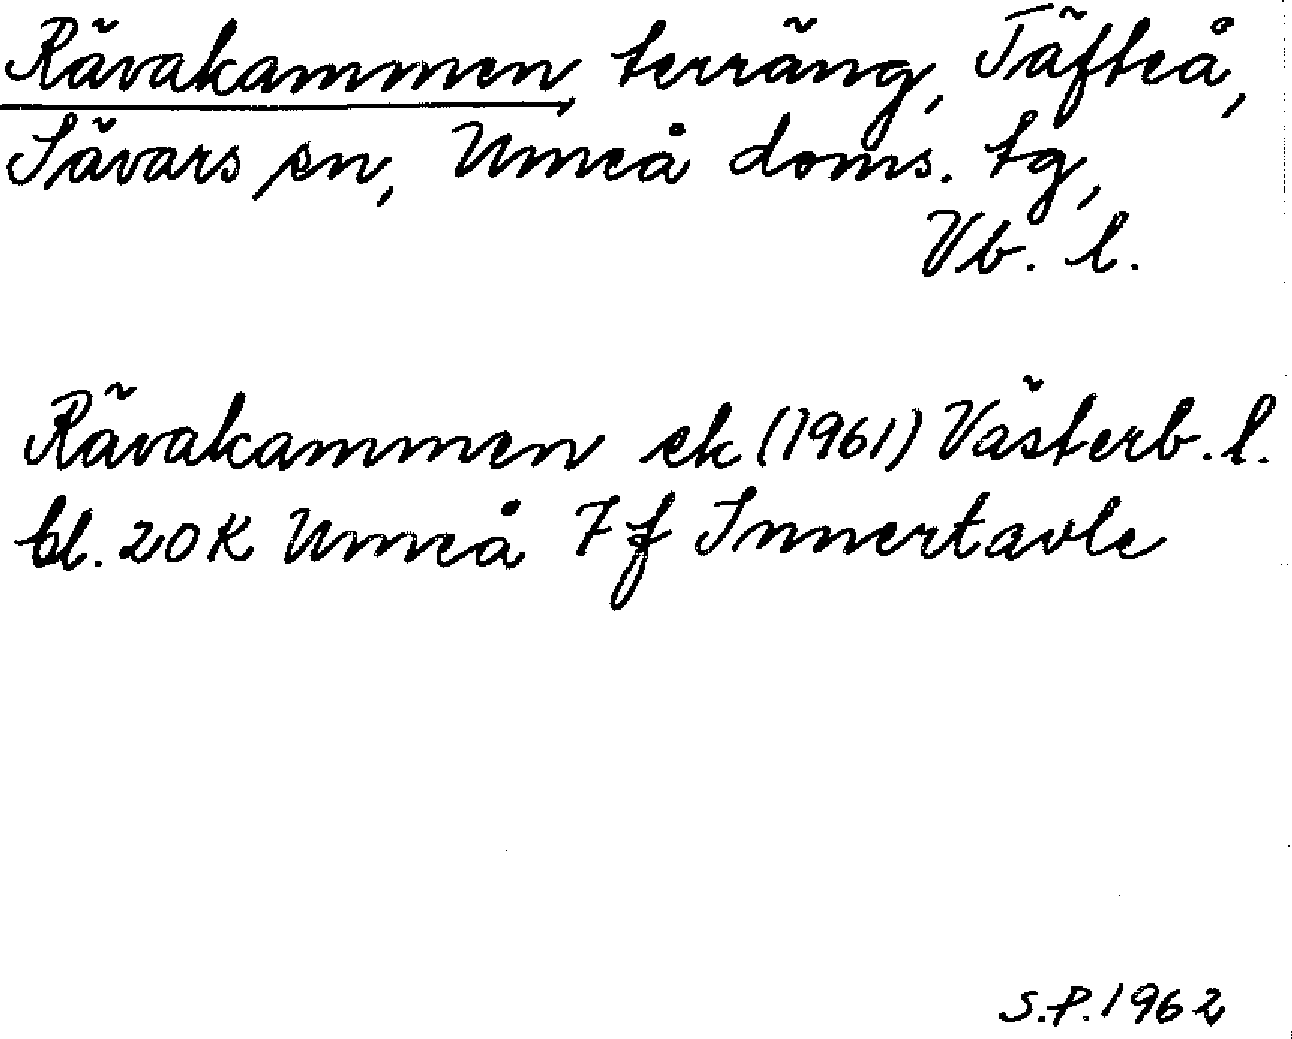 Rävakammen, terräng, Täfteå,
Sävars sn, Umeå doms. tg,
Vb. l.
Rävakammen ek (1961) Västerb. l.
bl. 20 K Umeå 7 f Innertavle
S.P. 1962